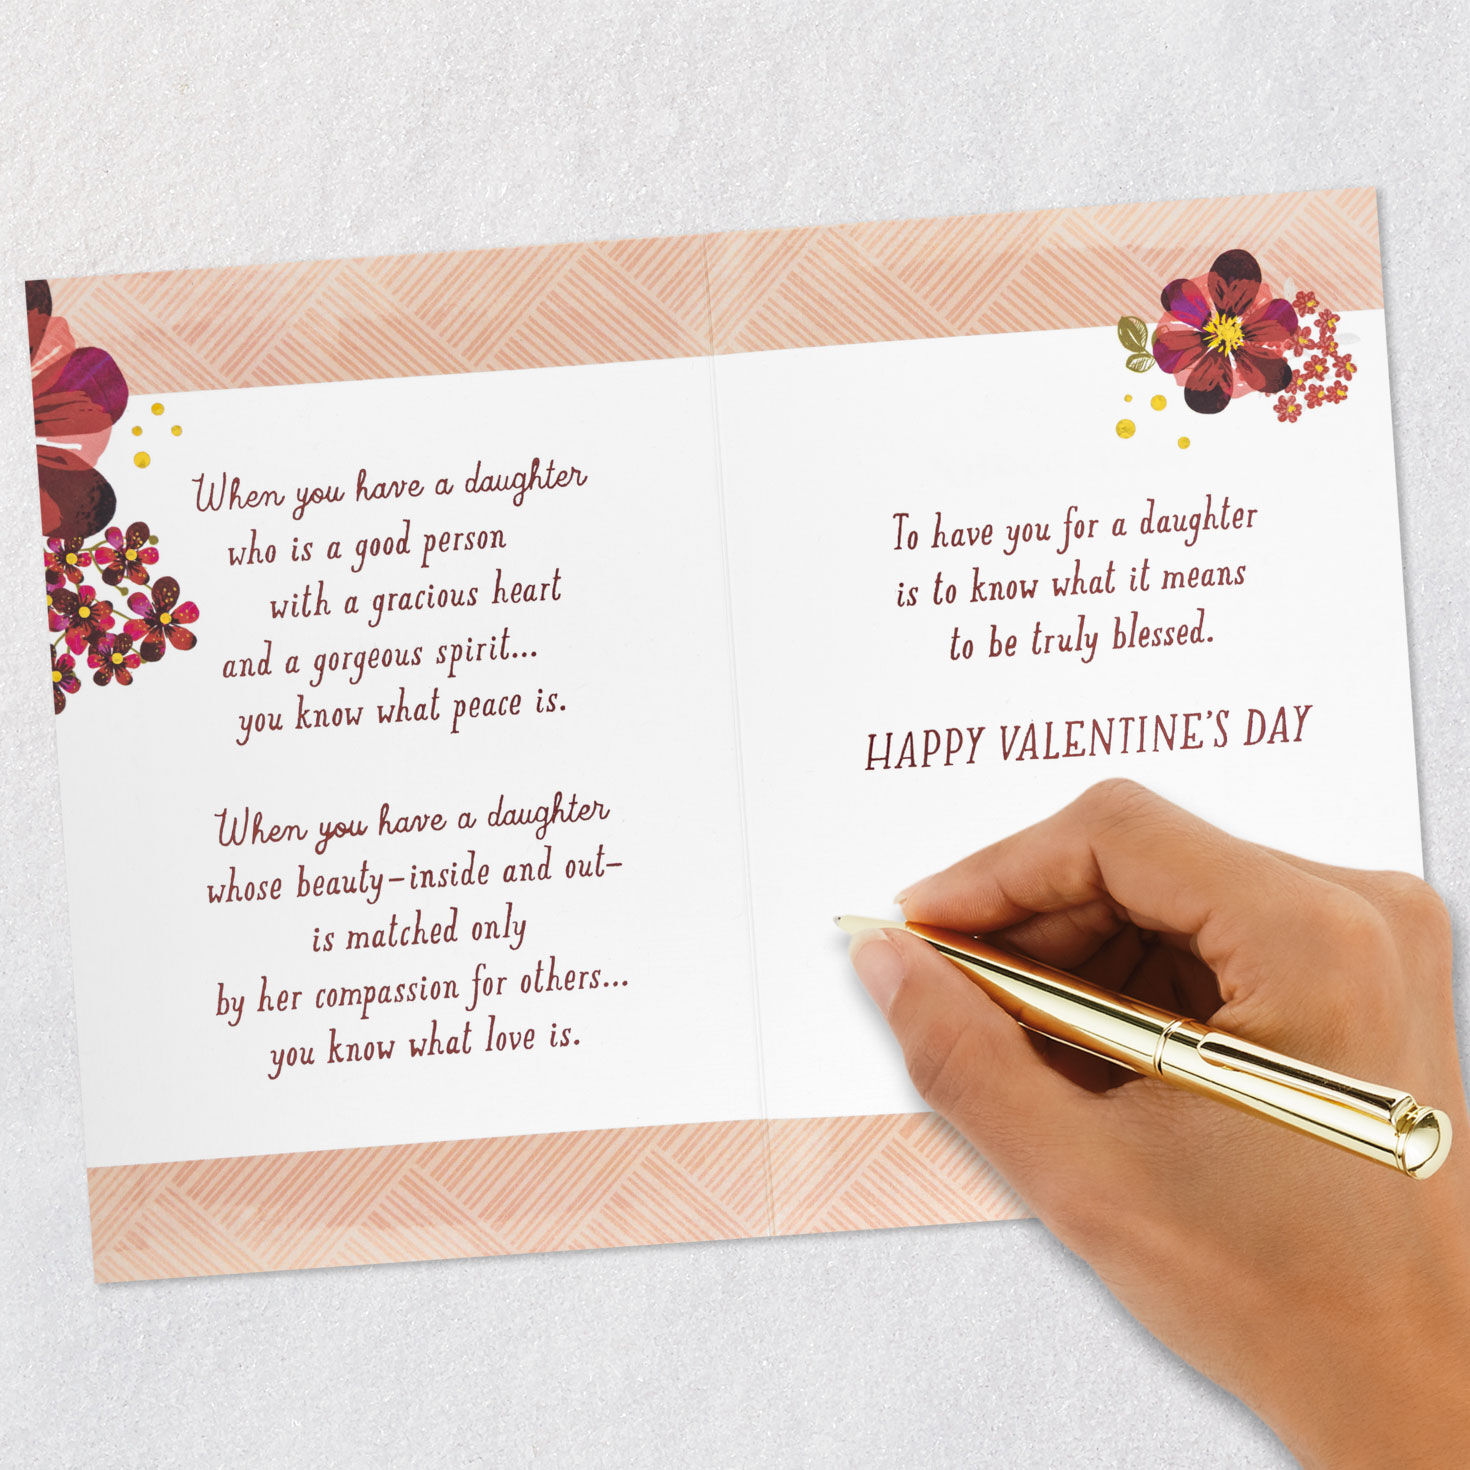 When you have a daughter
who is a good person
with a gracious heart
and a gorgeous spirit...
you know what peace is.
When you have a daughter
whose beauty–inside and out–
is matched only
by her compassion for others...
you know what love is.
To have you for a daughter
is to know what it means
to be truly blessed.
HAPPY VALENTINE'S DAY